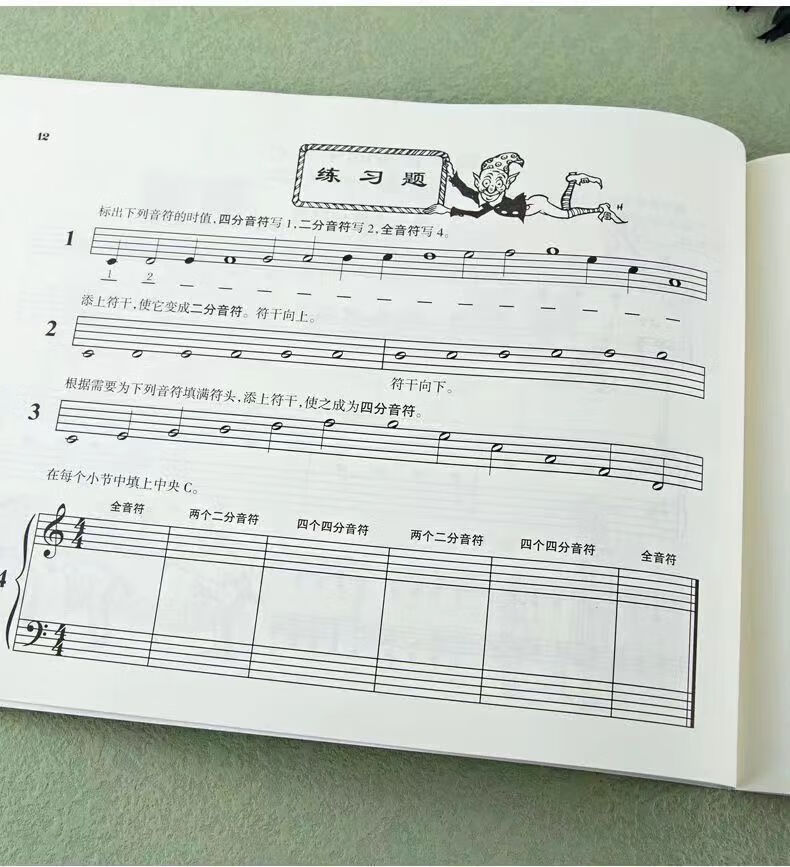 12
练习题
标出下列音符的时值,四分音符写1,二分音符写2,全音符写4。
1
1 2
添上符干,使它变成二分音符。符干向上。
2
符干向下。
根据需要为下列音符填满符头,添上符干,使之成为四分音符。
3
在每个小节中填上中央C。
全音符 两个二分音符 四个四分音符 两个二分音符 四个四分音符 全音符
4
4
4
4
4
H